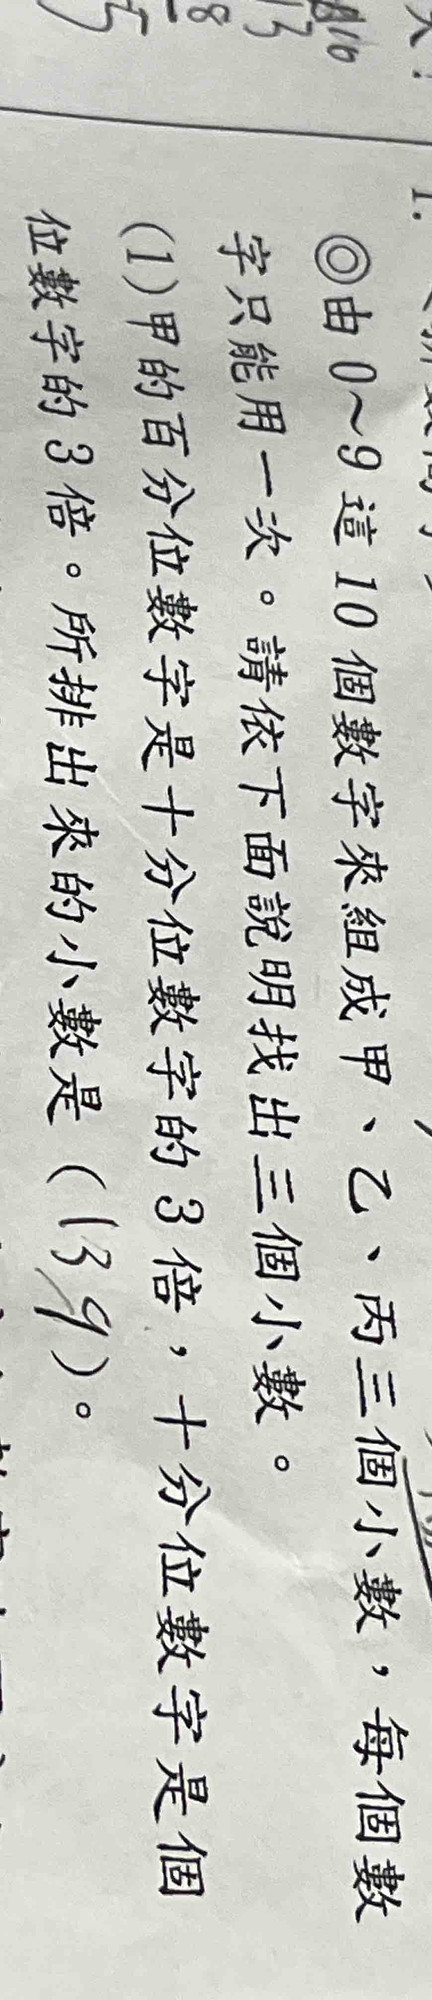 ◎由0~9這10個數字來組成甲、乙、丙三個小數，每個數
字只能用一次。請依下面說明找出三個小數。
(1)甲的百分位數字是十分位數字的3倍，十分位數字是個
位數字的3倍。所排出來的小數是（139）。